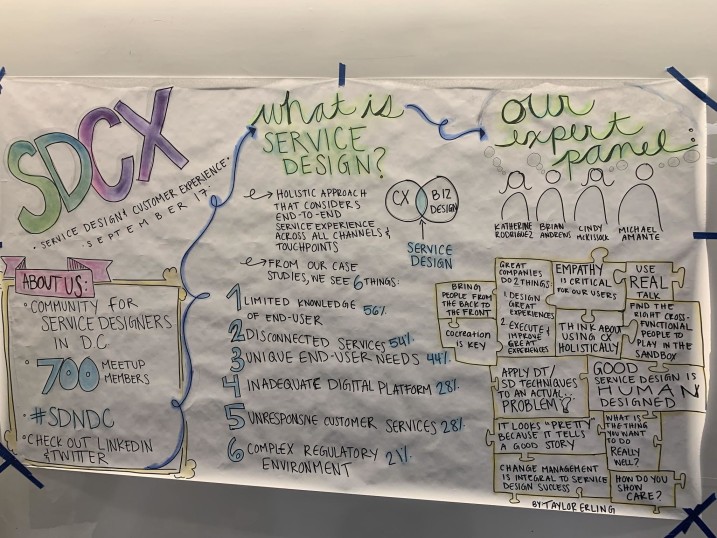 SDCX
• SERVICE DESIGN & CUSTOMER EXPERIENCE •
• SEPTEMBER 17 •
ABOUT US:
• COMMUNITY FOR
SERVICE DESIGNERS
IN D.C.
• 700 MEETUP
MEMBERS
• #SDNDC
• CHECK OUT LINKEDIN
& TWITTER
what is
SERVICE
DESIGN?
HOLISTIC APPROACH
THAT CONSIDERS
END-TO-END
SERVICE EXPERIENCE
ACROSS ALL CHANNELS &
TOUCHPOINTS
CX
BIZ
DESIGN
SERVICE
DESIGN
FROM OUR CASE
STUDIES, WE SEE 6 THINGS:
1 LIMITED KNOWLEDGE 56%
OF END-USER
2 DISCONNECTED SERVICES 54%
3 UNIQUE END-USER NEEDS 44%
4 INADEQUATE DIGITAL PLATFORM 28%
5 UNRESPONSIVE CUSTOMER SERVICES 28%
6 COMPLEX REGULATORY 21%
ENVIRONMENT
our
expert
panel:
KATHERINE
RODRIGUEZ
BRIAN
ANDREWS
LINDY
MCKISSOCK
MICHAEL
AMANTE
BRING
PEOPLE FROM
THE BACK TO
THE FRONT
COCREATION
IS KEY
GREAT
COMPANIES
DO 2 THINGS:
1 DESIGN
GREAT
EXPERIENCES
2 EXECUTE &
IMPROVE
GREAT
EXPERIENCES
EMPATHY
IS CRITICAL
FOR OUR USERS
USE
REAL
TALK
THINK ABOUT
USING CX
HOLISTICALLY
FIND THE
RIGHT CROSS-
FUNCTIONAL
PEOPLE TO
PLAY IN THE
SANDBOX
APPLY DT/
SD TECHNIQUES
TO AN ACTUAL
PROBLEM
GOOD
SERVICE DESIGN IS
HUMAN
DESIGNED
IT LOOKS "PRETTY"
BECAUSE IT TELLS
A GOOD STORY
WHAT IS
THE THING
YOU WANT
TO DO
REALLY
WELL?
CHANGE MANAGEMENT
IS INTEGRAL TO SERVICE
DESIGN SUCCESS
HOW DO YOU
SHOW
CARE?
BY: TAYLOR ERLING